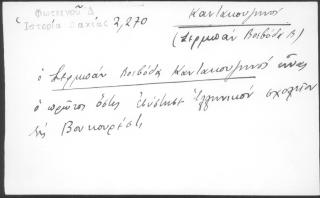 Φωτεινοῦ Δ
Ἱστορία Δακίας 2,270
Καντακουζηνοί
(Σερμπάν Βοεβόδα Α)
ὁ Σερμπάν Βοεβόδα Καντακουζηνός εἶναι
ὁ πρῶτος ὅστις ἐσύστησε ἑλληνικόν σχολεῖον
εἰς Βουκουρέστι